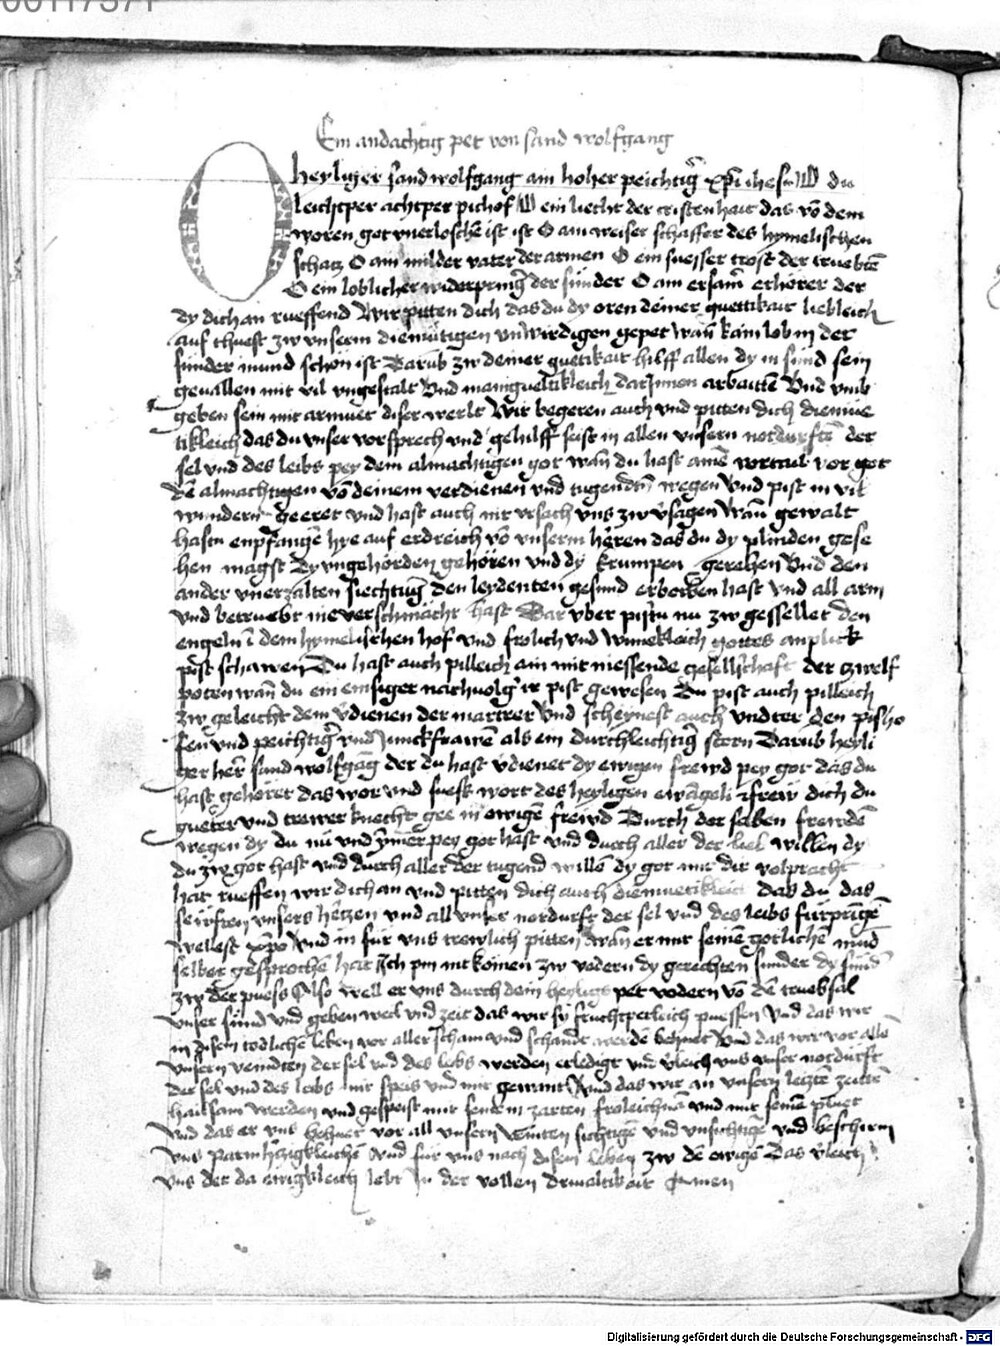 Ein andachtig pet von sand wolfgang
O heyliger sand wolfgang ain hoher peichtig̃ xp̃i ihesu O du
leichtper achtper pischof O ein liecht der cristenhait das vō dem
woren got vnerloschē ist O ain weiser schaffer des hymelischen
schatz O ain milder vater der armen O ein suesser trost der truebtē
O ein loblicher widerpring̃ der sünder O ain ersam̃ erhörer der
dy dich an rueffend Wir pitten dich das du dy oren deiner guettikait liebleich
auf thuest zw vnserm diemütigen vnwirdigen gepet wañ kain lob in der
sünder mund schön ist Darūb zw deiner guetikait hilff allen dy in sünd sein
geuallen mit vil vngestalt Vnd manigueltikleich darjnnen arbaittē Vnd vmb
geben sein mit armuet diser werlt Wir begeren auch vnd pitten dich diemue
tikleich das du vnser vorsprech vnd gehilff seist in allen vnsern notdurftē der
sel vnd des leibs pey dem almachtigen got wañ du hast ainē vortail vor got
dē almachtigen vō deinem verdienen vnd tugendtn̄ wegen Vnd pist in vil
wundern geeret vnd hast auch nit vrsach vns zw v̄sagen Wañ gewalt
hastu enpfangē hye auf erdreich vō vnserm heren das du dy plinden gese
hen magst Dy vngehörden gehören vnd dy krumpen gerehen Vnd den
ander vnerzalten siechtūg den leydenten gesund erborben hast Vnd all arm
vnd betruebt nie verschmächt hast Dar vber pistu nu zw gesellet den
engeln ī dem hymelischen hof vnd frolich vnd wunikleich gottes anplick
pist schawen Du hast auch pilleich ain mit niessende gesellschaft der zwelf
poten wañ du ein einsiger nachuolg̃ ir pist gewesen Du pist auch pilleich
zw geleicht dem v̄dienen der martrer Vnd scheynest auch vndter den pischo
fen vnd peichtig̃ vnd Junckfrawē als ein durchleichtig̃ stern Darūb heyli
ger her̄ sand wolfgāg der du hast v̄dienet dy ewigen frewd pey got das du
hast gehöret das wor vnd suess wort des heyligen ewāgeli frew dich du
gueter vnd trewer knecht gee in ewigē frewd Durch der selben frewdē
wegen dy du nu vnd ym̄er pey got hast vnd durch aller der lieb willen dy
du zw got hast vnd durch aller der tugend willē dy got mit dir volpracht
hat rueffen wir dich an vnd pitten dich auch diemuetikleich das du das
seüften vnsers hertzen vnd all vnser notdurft der sel vnd des leibs fürpringē
wellest xp̄o Vnd in für vns trewlich pitten wañ er mit seinē gotlichē mūd
selber gesprochē hat Ich pin nit komen zw vodern dy gerechten sunder dy sünd̃
zw der puess Also well er vns durch dein heyligs pet vodern vō dē truebsal
vnser sünd vnd geben weil vnd zeit das wir sy fruchtperleich puessen Vnd das wir
in disem todlichē leben vor aller scham vnd schandt werdē behuet Vnd das wir vor allē
vnsern veindten der sel vnd des leibs werden erledigt vnd v̄leich vns vnser notdurft
der sel vnd des leibs mit speis vnd mit gewant Vnd das wir an vnsern leiztē zeittē
hailsam werden vnd gespeist mit seinem zarten froleichnā vnd mit seinē pluet
Vnd das er vns behuet vor all vnsern veinten sichtigē vnd vnsichtigē vnd beschirm
vns parmhertzigkleichē Vnd für vns nach disem leben zw dē ewigē Das v̄leich
vns der da ewigkleich lebt In der vollen driualtikait Amen
Digitalisierung gefördert durch die Deutsche Forschungsgemeinschaft - DFG